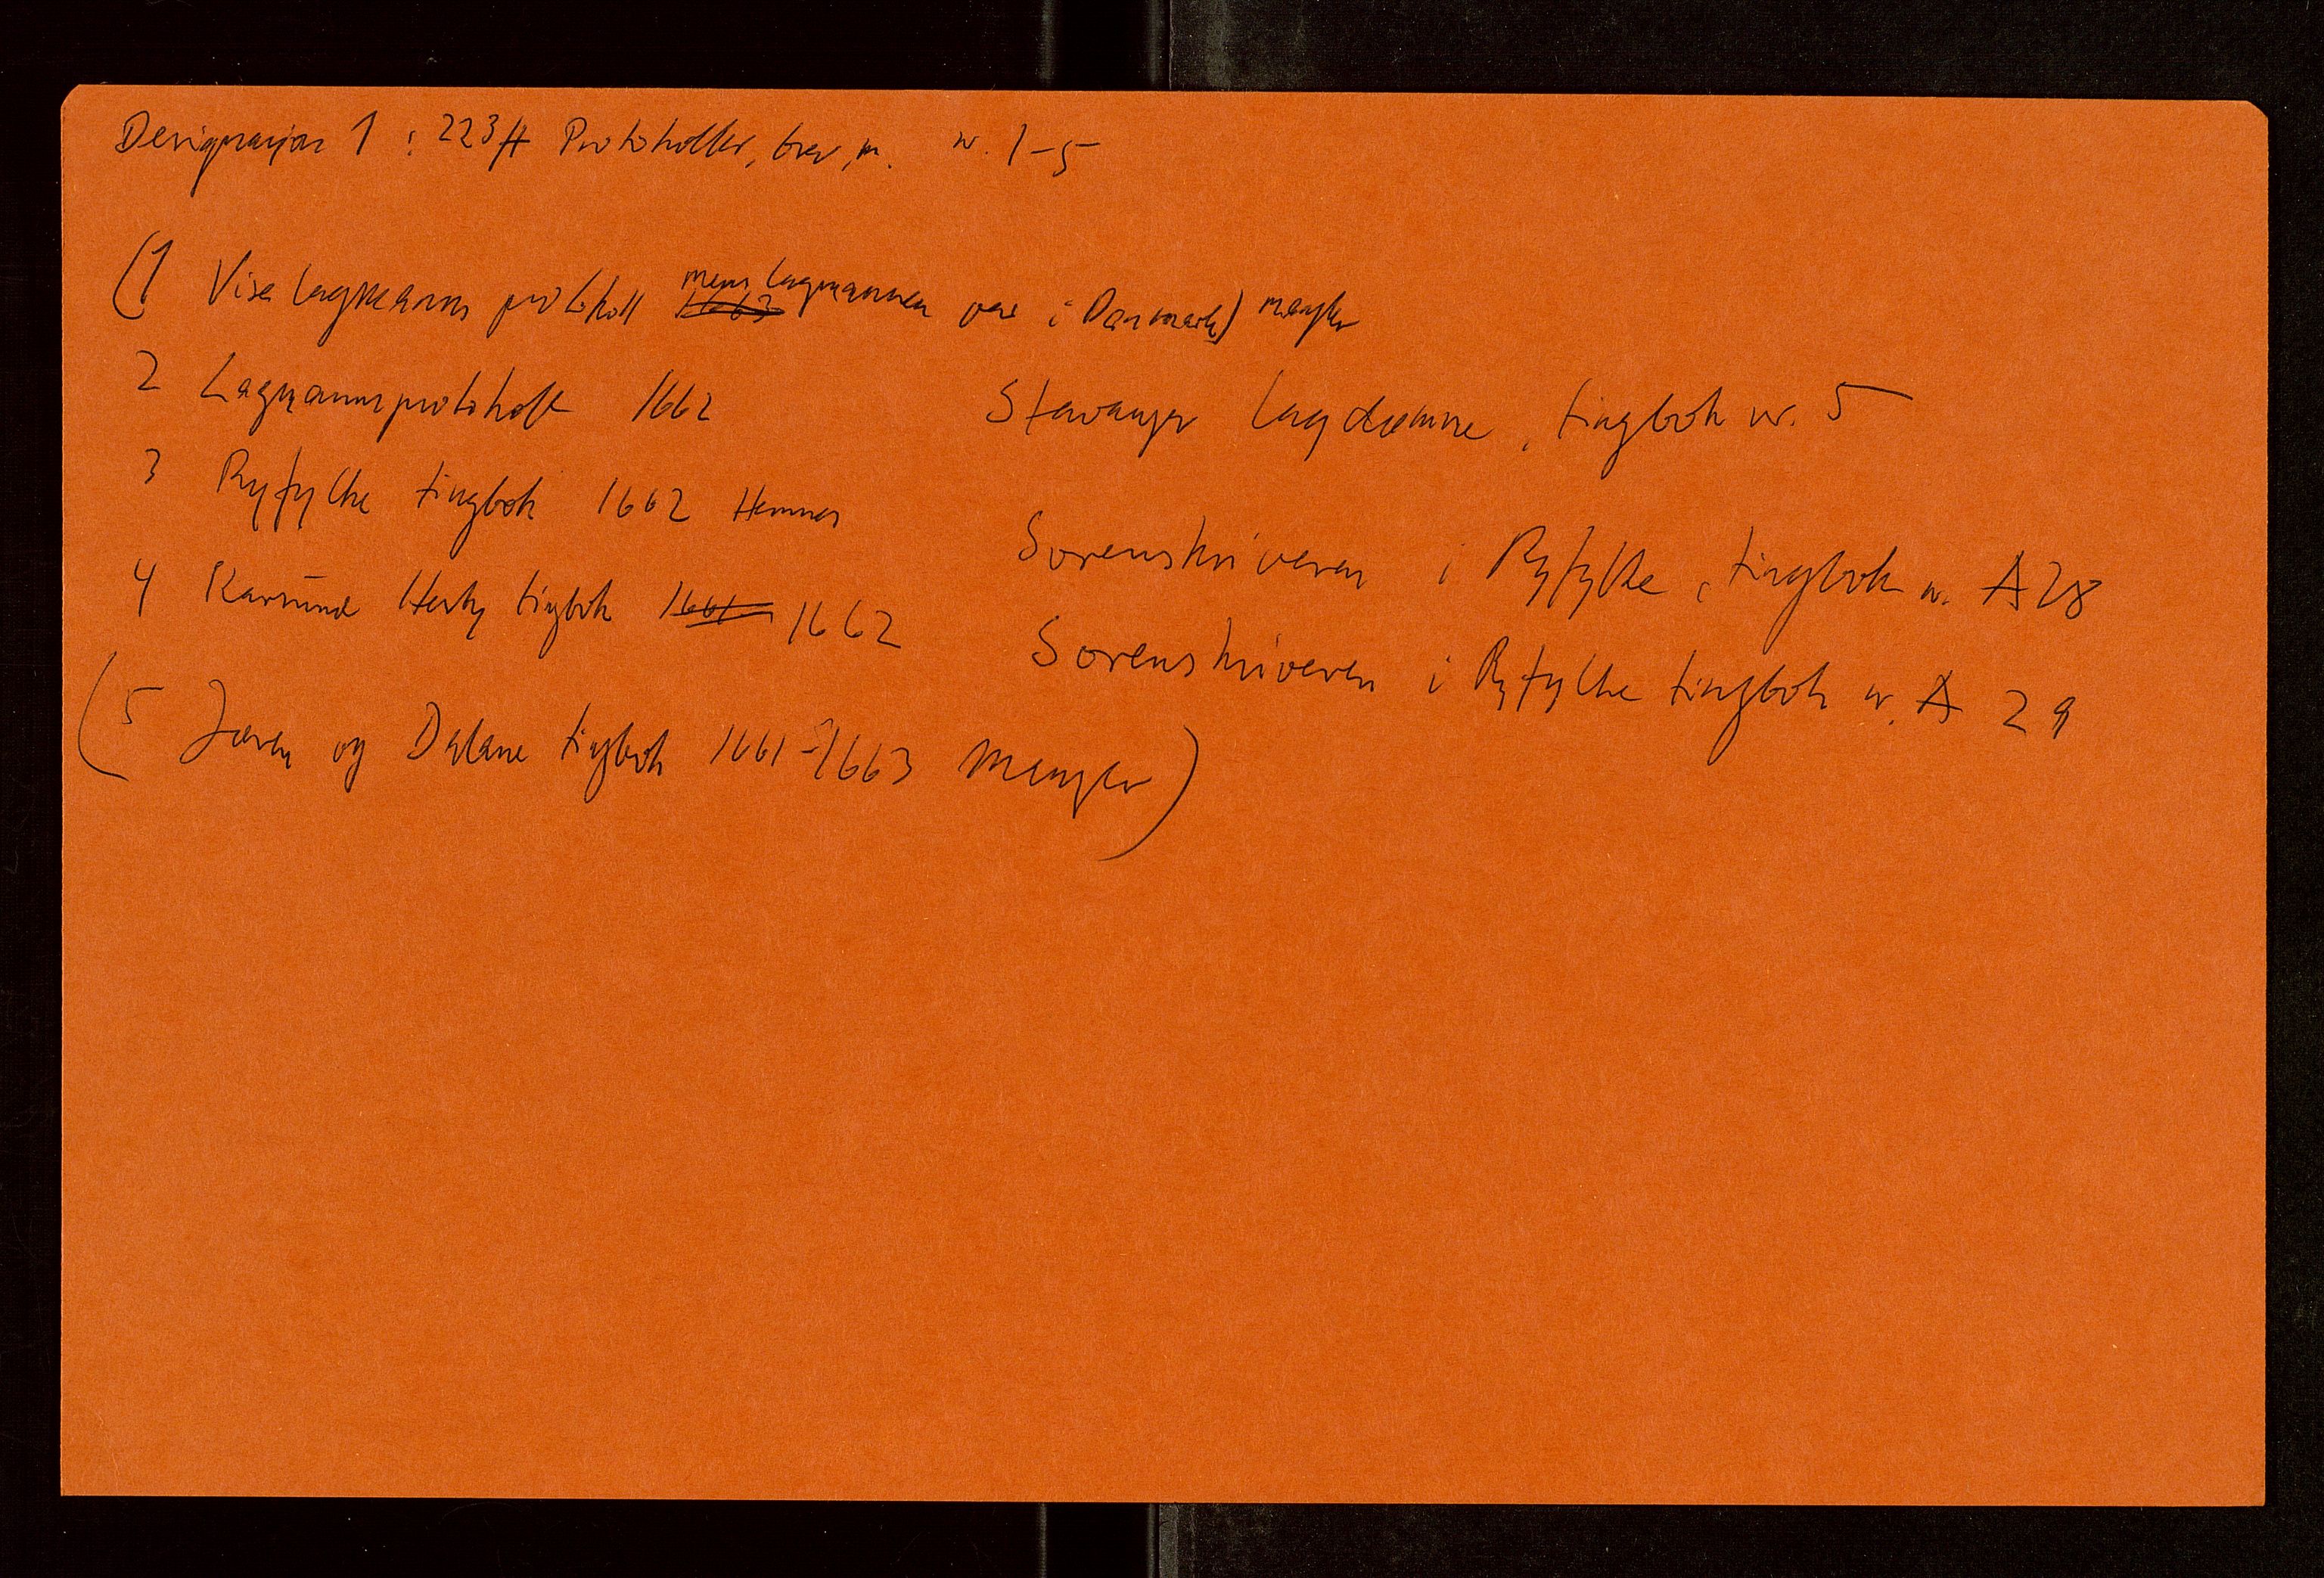 Designasjon 1 : 223 ff Protokoller, brev, m. nr. 1-5
(1 Vise lagmanns protokoll ~~1663~~ mens lagmannen var i Danmark) mangler
2 Lagmannsprotokoll 1662 Stavanger lagdømme, tingbok nr. 5
3 Ryfylke tingbok 1662 Sorenskriveren i Ryfylke, tingbok nr. A 28
4 Karmsund Hesby tingbok ~~1661~~ 1662 Sorenskriveren i Ryfylke tingbok nr. A 29
(5 Jæren og Dalane tingbok 1661-1663 Mangler)